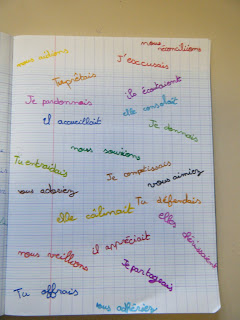 nous
réconciliions
nous
J'excusais
Tu prêtais
Ils écoutaient
Je pardonnais
elle consolait
il accueillait
Je donnais
nous souriions
Tu entraidais
Je
vous aimiez
vous adoriez
Tu défendais
elle câlinait
elles
nous veillions
il appréciait
Je partageais
Tu offrais
vous adhériez